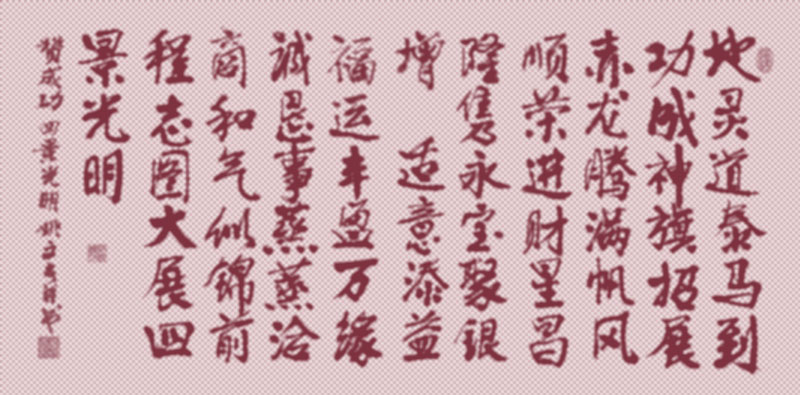 地灵道泰马到
功成神旗招展
赤龙腾满帆风
顺荣进财星昌
隆隽永宝聚银
增 适意添益
福运丰盈万缘
诚恳事蒸蒸洽
商和气似锦前
程志图大展四
景光明
赞成功 四景光明